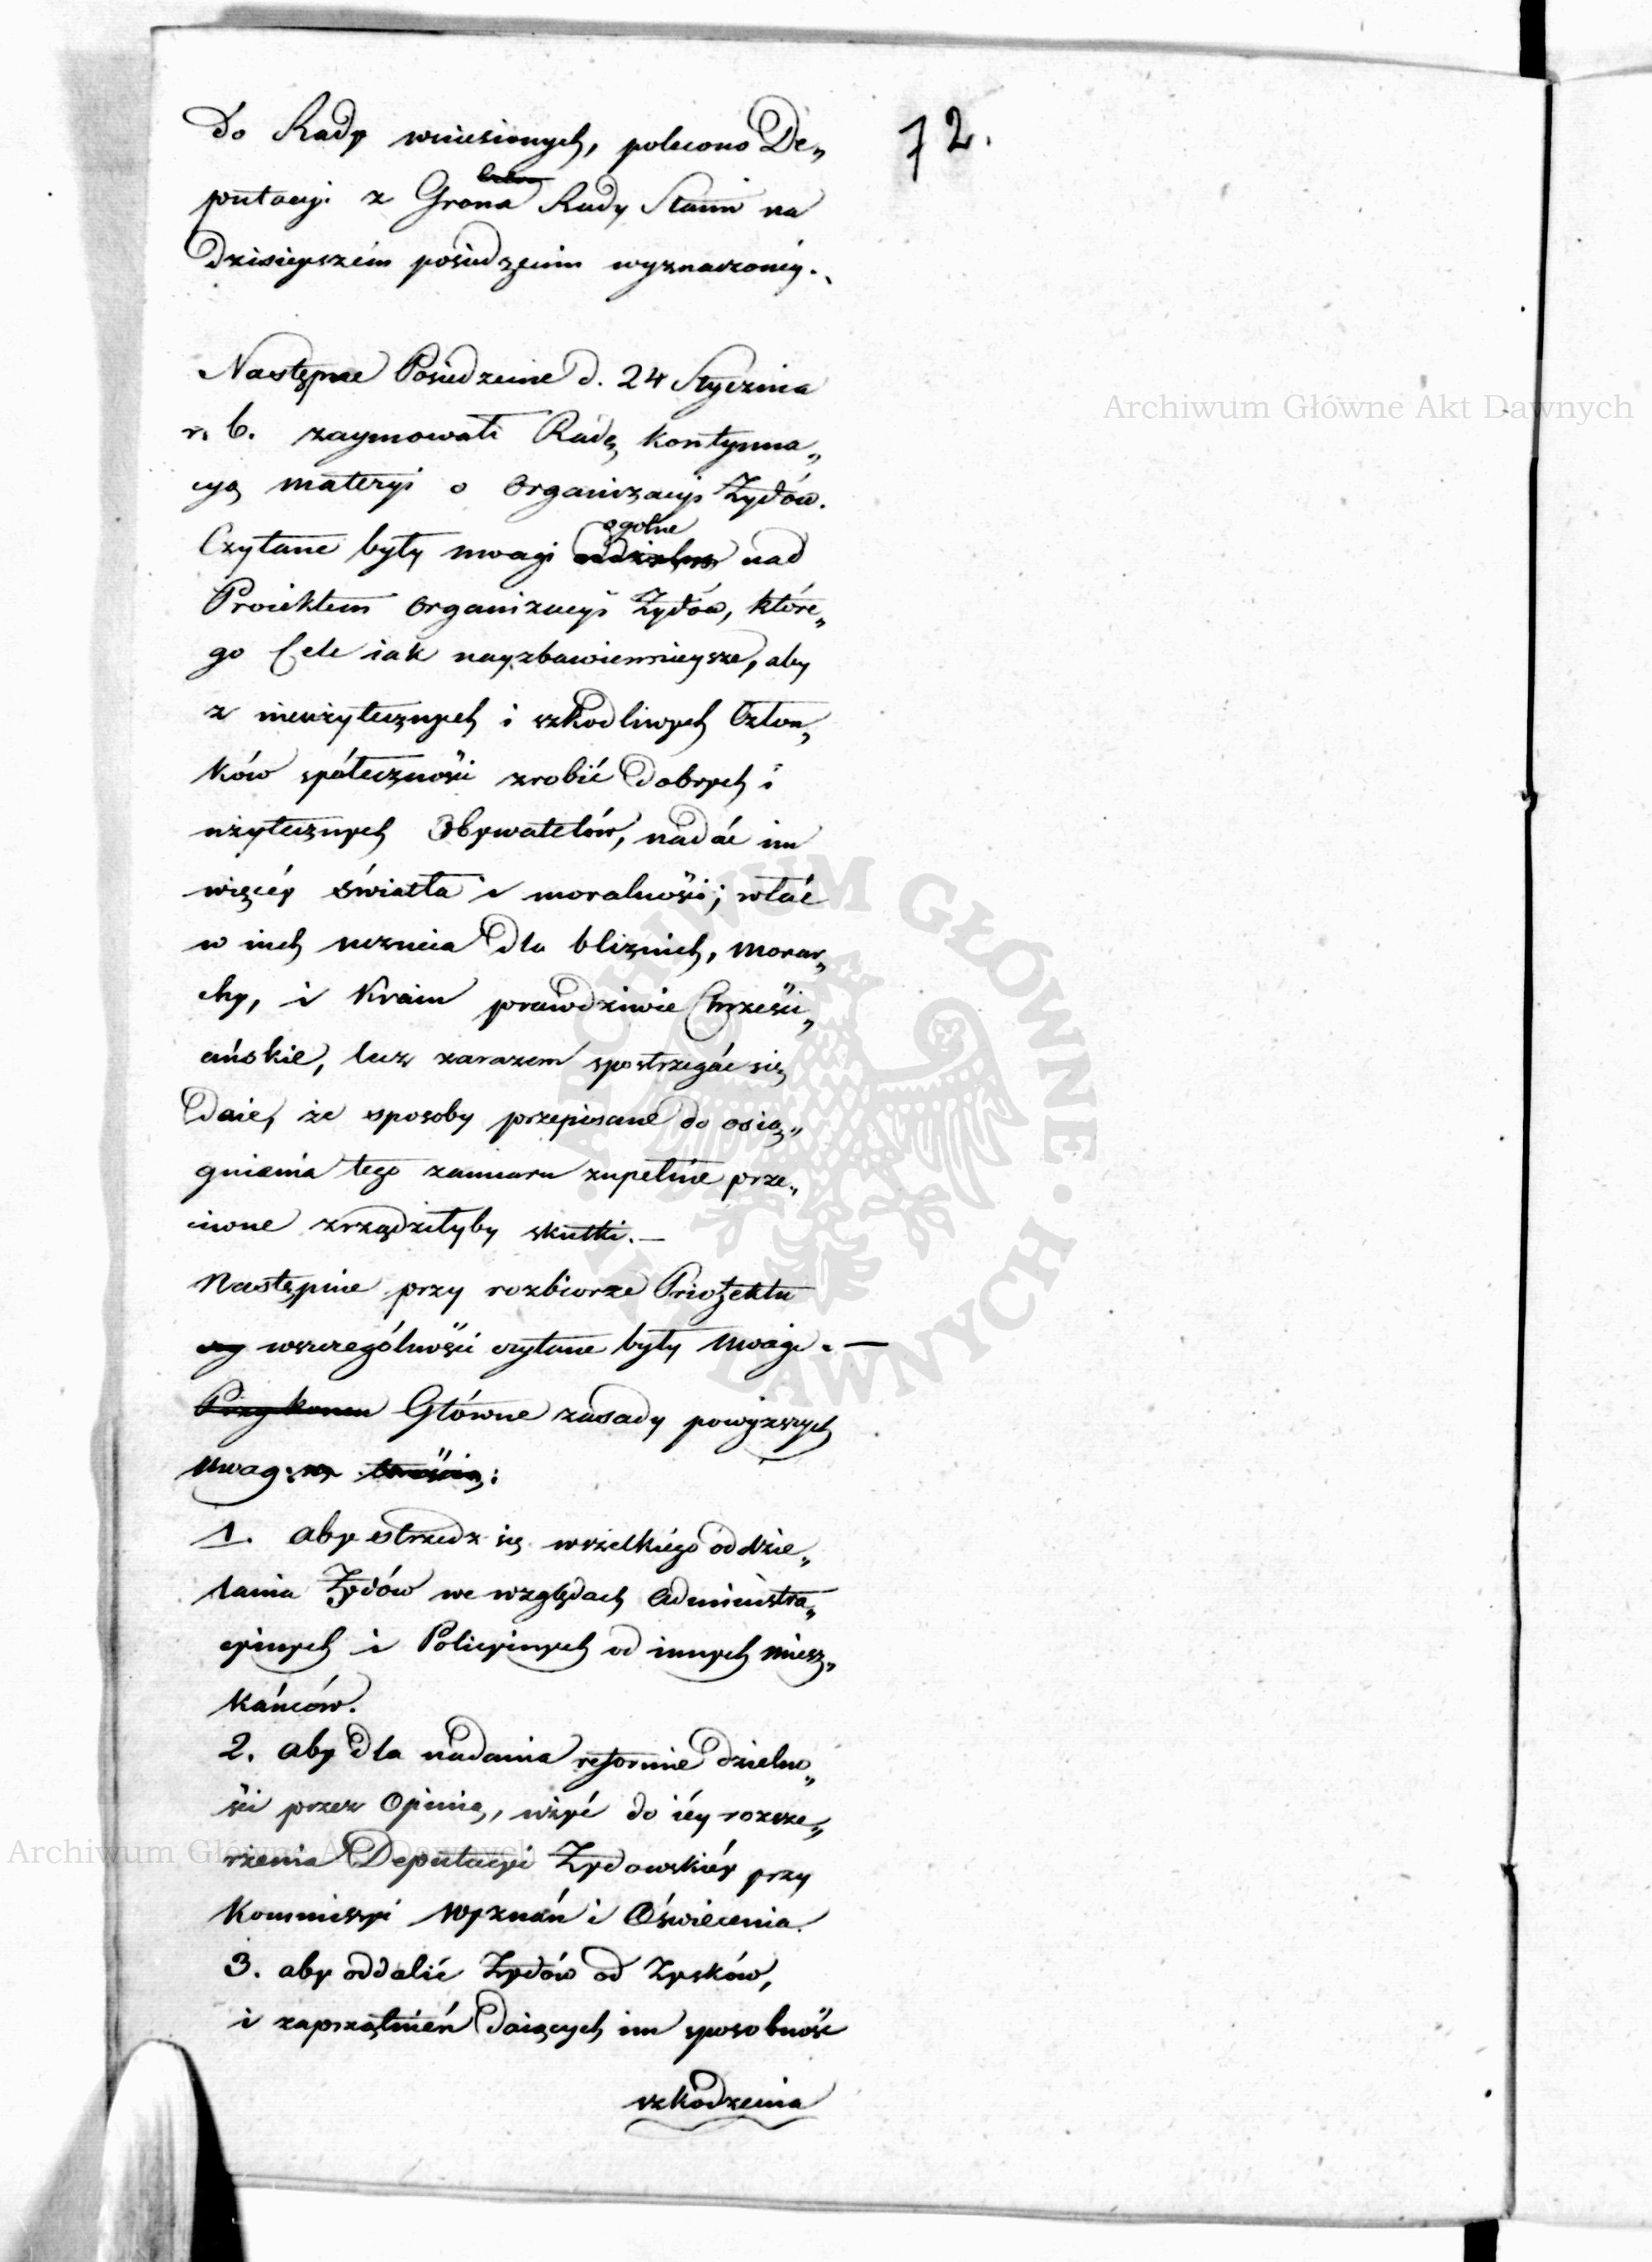 72.
do Rady wniesionych, polecono De„
putacyi z Grona Rady Stanu na
dzisieyszém posiedzeniu wyznaczoney.
Następne Posiedzenie d. 24 Stycznia
r. b. zaymowała Radę kontynua„
cyą materyi o Organizacyi Żydów.
ogolne
Czytane były uwagi nad
Proiektem Organizacyi Żydów, które„
go Cele iak nayzbawiennieysze, aby
z nieużytecznych i szkodliwych Człon„
ków społeczności zrobić dobrych i
użytecznych Obywatelów, nadać im
więcéy światła i moralności; wlać
w nich uczucia dla bliźnich, Monar„
chy, i Kraiu prawdziwie Chrześci„
ańskie, lecz zarazem spostrzegać się
daie, że sposoby przepisane do osią„
gnienia tego zamiaru zupełnie prze„
ciwne zrządziłyby skutki. —
Następnie przy rozbiorze Proiektu
wszczególności czytane były uwagi. —
Przy koncu Główne zasady powyższych
uwag:
1. aby strzedz się wszelkiego oddzie„
lania Żydów we względach Administra„
cyinych i Policyinych od innych miesz„
kańców.
2. aby dla nadania reformie dzielno„
ści przez Opinię, użyć do iéy rozsze„
rzenia Deputacyi Żydowskiéy przy
Kommissyi Wyznań i Oświecenia.
3. aby oddalić Żydów od Zysków,
i zaprzątnień daiących im sposobność
szkodzenia
Archiwum Główne Akt Dawnych
ARCHIWUM GŁÓWNE AKT DAWNYCH
Archiwum Główne Akt Dawnych